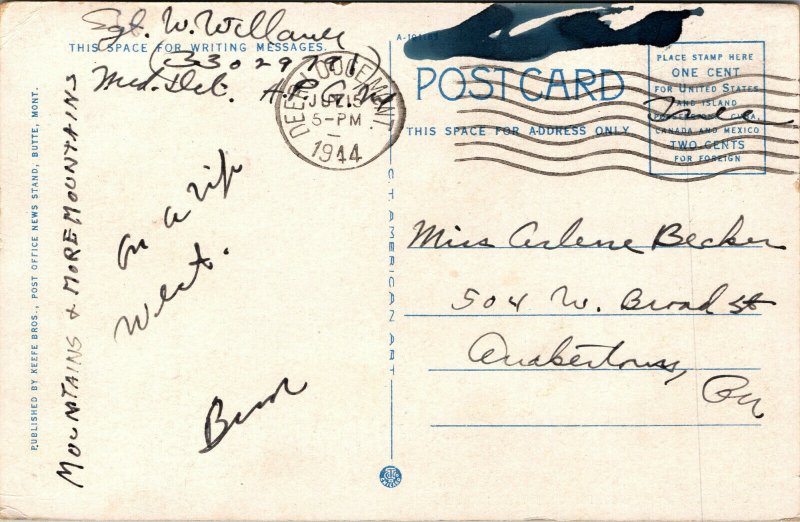 Sgt. W. Willauer
THIS SPACE FOR WRITING MESSAGES.
(33029781)
Med. Det.
MOUNTAINS & MORE MOUNTAINS
on a trip
West.
PUBLISHED BY KEEFE BROS., POST OFFICE NEWS STAND, BUTTE, MONT.
DEER LODGE, MONT.
15
5-PM
1944
POST CARD
THIS SPACE FOR ADDRESS ONLY
PLACE STAMP HERE
ONE CENT
FOR UNITED STATES
AND ISLAND
CUBA,
CANADA AND MEXICO
TWO CENTS
FOR FOREIGN
Free
Miss Arlene Becker
504 W. Broad St
Quakertown,
Pa
C. T. AMERICAN ART